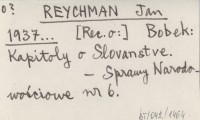 o? REYCHMAN Jan
1937... [Rec. o:] Bobek:
Kapitoly o Slovanstve.
— Sprawy Narodo-
wościowe nr 6.